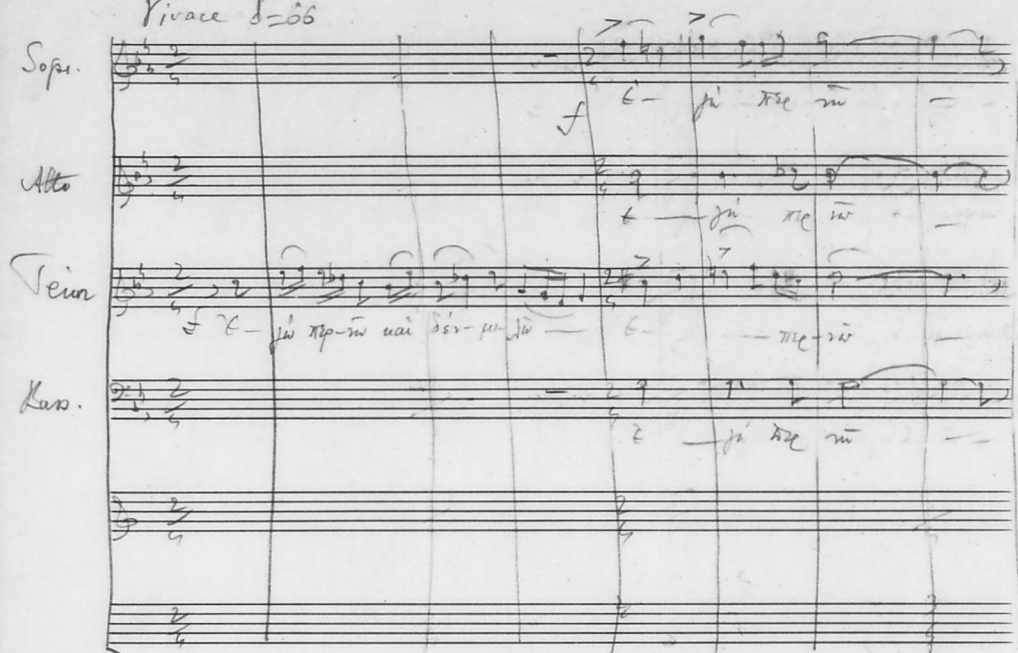 Vivace ♩=66
Sopr.
f
Ἐ- γὼ περ νῶ -
Alto
Ἐ - γὼ περ νῶ -
Tenor
f Ἐ- γὼ περ-νῶ καὶ δέν μι-λῶ - Ἐ- - περ-νῶ -
Bass.
Ἐ - γὼ περ νῶ -